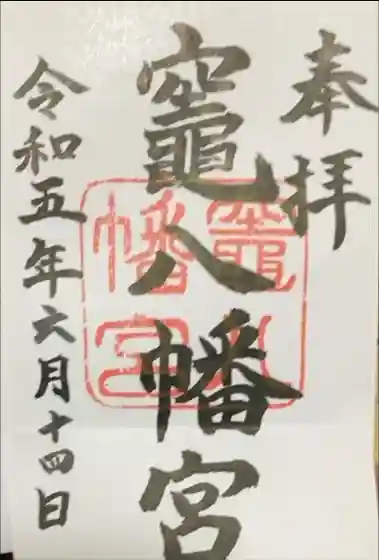 奉拝
竈八幡宮
令和五年六月十四日
竈八
幡宮